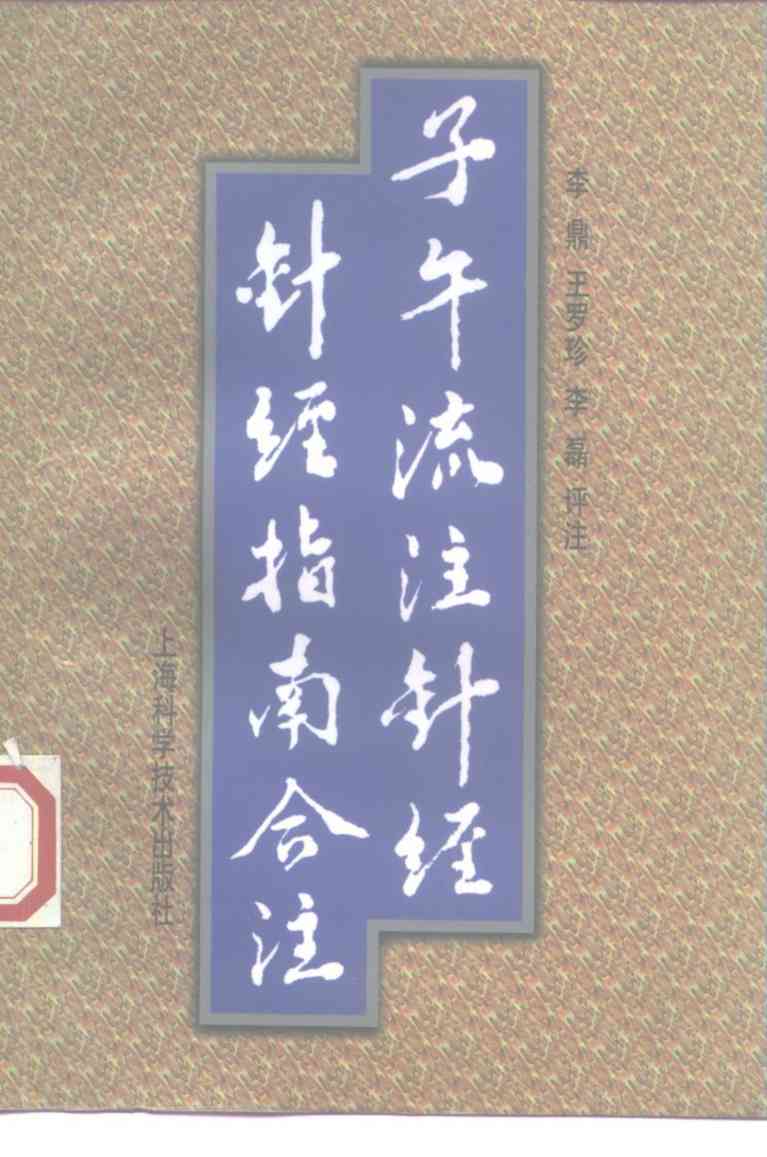 李鼎 王罗珍 李磊 评注
子午流注针经
针经指南合注
上海科学技术出版社